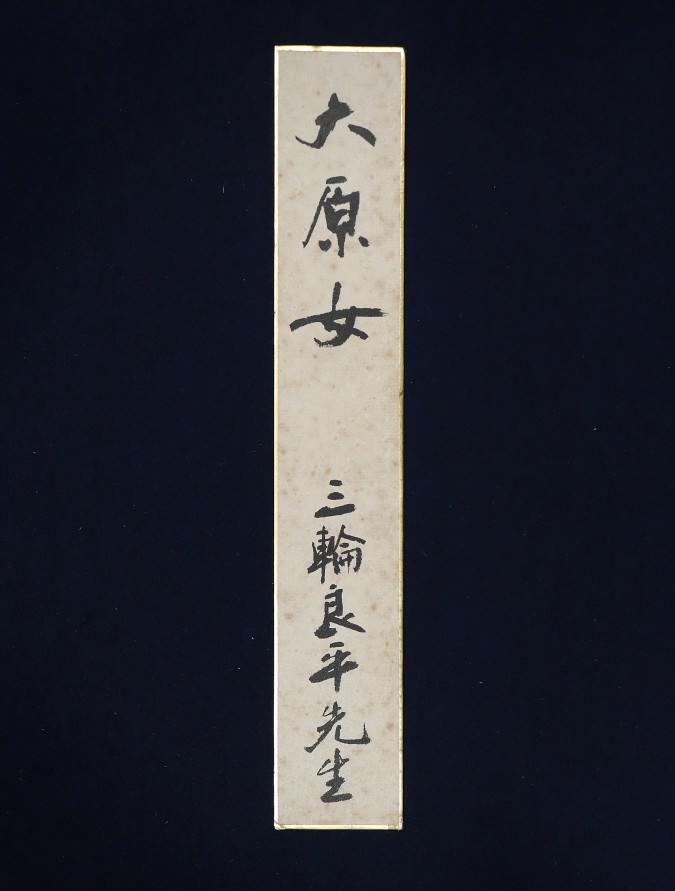 大原女
三輪良平先生